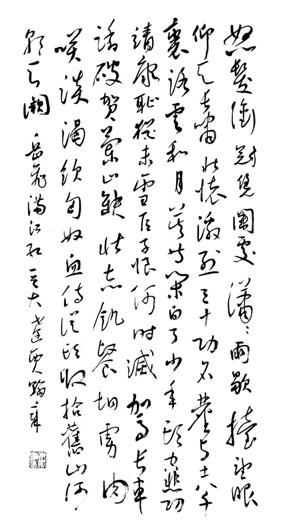 怒髮衝冠憑闌處瀟〻雨歇擡望眼
仰天長嘯壯懷激烈三十功名塵與土八千
里路雲和月莫等閒白了少年頭空悲切
靖康恥猶未雪臣子恨何時滅駕長車
踏破賀蘭山缺壯志飢餐胡虜肉
笑談渴飲匈奴血待從頭收拾舊山河
朝天闕 岳飛滿江紅